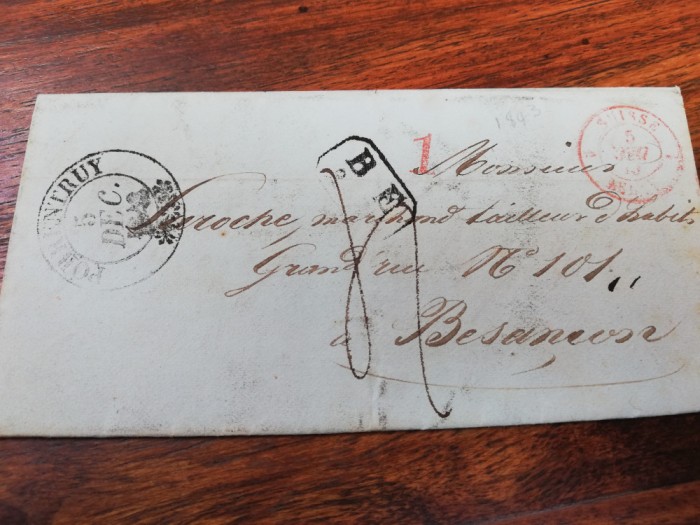 1843
1
SUISSE
5
DEC.
43
Monsieur
PORRENTRUY
5
DEC.
B
Laroche, marchand tailleur d'habits
Grand'rue N° 101
à Besançon